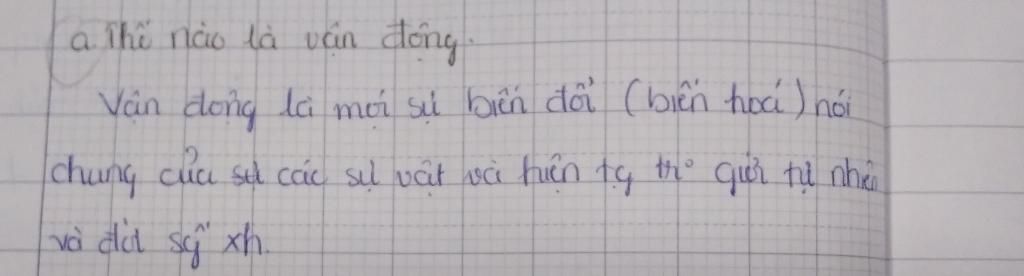 a. Thế nào là vận động.
Vận động là mọi sự biến đổi (biến hoá) nói
chung của các sự vật và hiện tg thº giới tự nhiên
và đời sg xh.